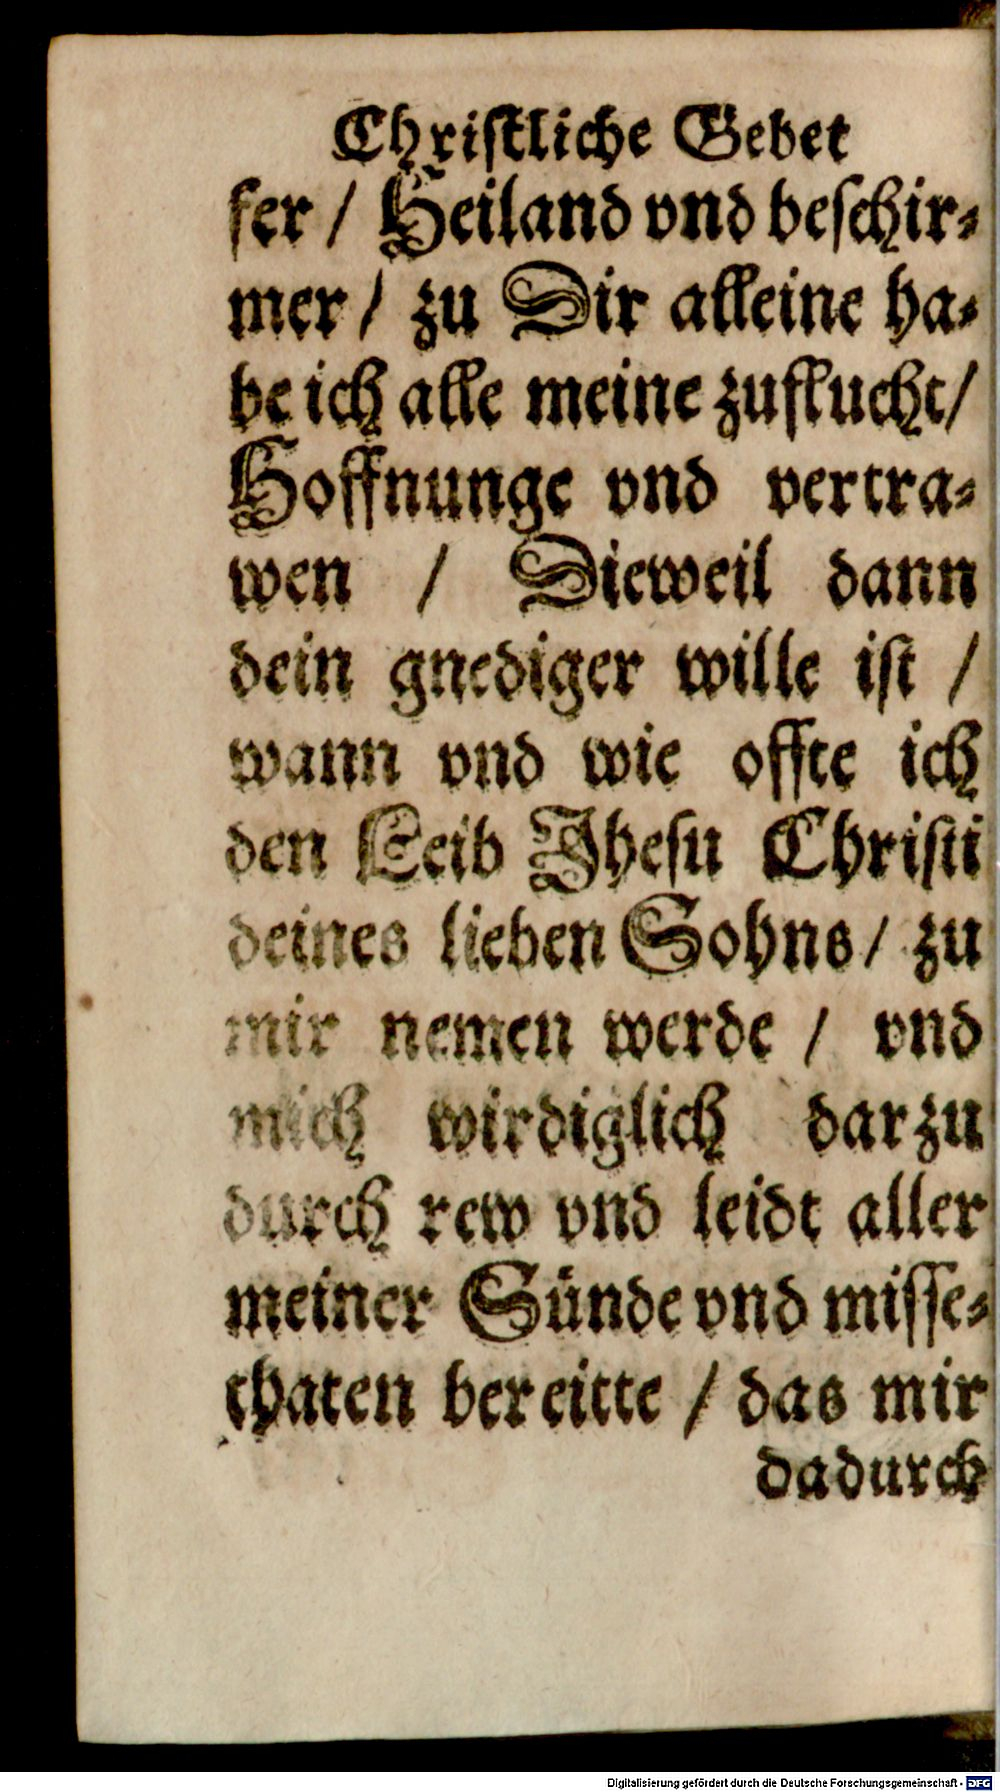 Christliche Gebet
fer / Heiland vnd beschir⸗
mer / zu Dir alleine ha⸗
be ich alle meine zuflucht/
Hoffnunge vnd vertra⸗
wen / Dieweil dann
dein gnediger wille ist /
wann vnd wie offte ich
den Leib Jhesu Christi
deines lieben Sohns / zu
mir nemen werde / vnd
mich wirdiglich darzu
durch rew vnd leidt aller
meiner Sünde vnd misse⸗
thaten bereitte / das mir
dadurch
Digitalisierung gefördert durch die Deutsche Forschungsgemeinschaft - DFG